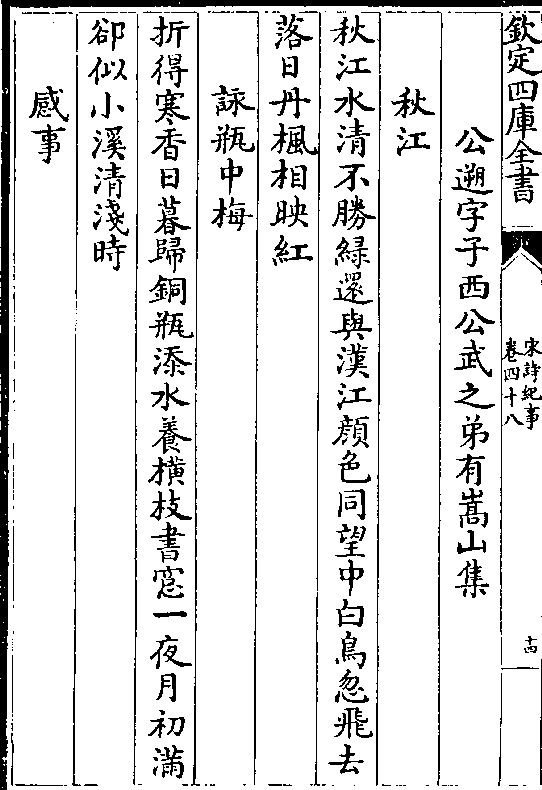 欽定四庫全書
宋詩紀事
卷四十八
十四
公遡字子西公武之弟有嵩山集
秋江
秋江水清不勝緑還與漢江顔色同望中白鳥忽飛去
落日丹楓相映紅
詠瓶中梅
折得寒香日暮歸銅瓶添水養横枝書窓一夜月初滿
卻似小溪清淺時
感事